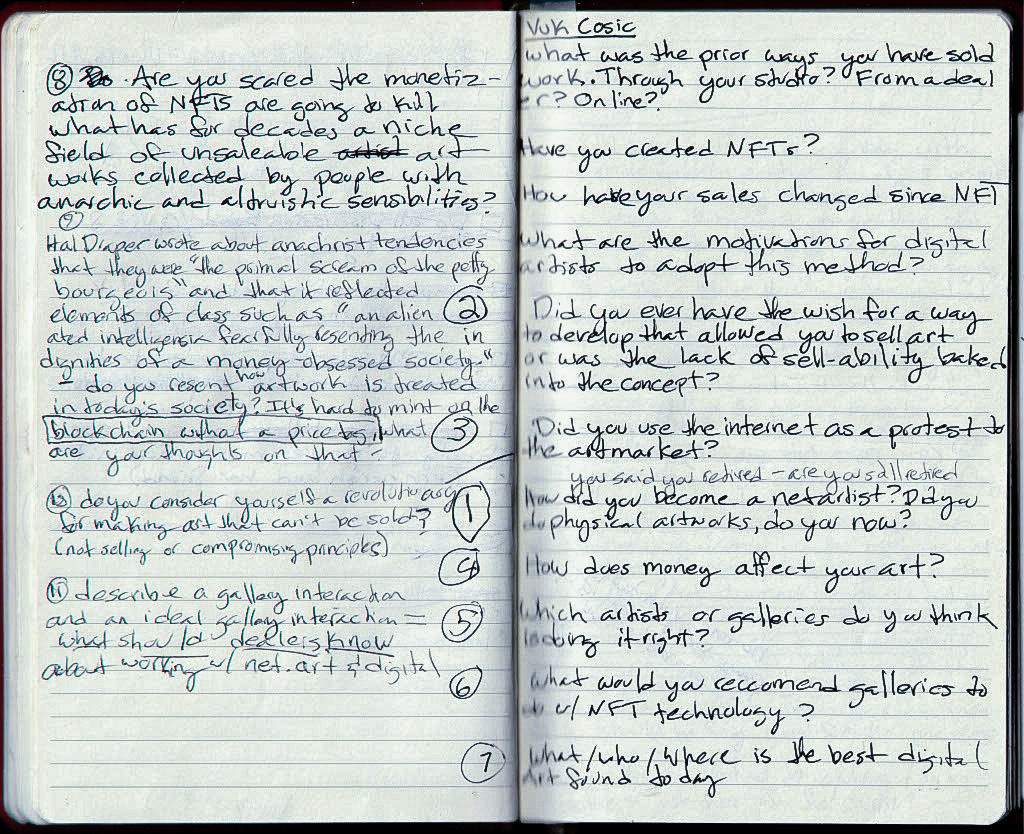 ⑧ Are you scared the monetiz-
ation of NFTs are going to kill
what has for decades a niche
field of unsaleable artist art
works collected by people with
anarchic and altruishic sensibilities?
⑨
Hal Draper wrote about anachrist tendencies
that they were "the primal scream of the petty
bourgeois" and that it reflected
elements of class such as "an alien
ated intelligensia fearfully resenting the in
dignities of a money-obsessed society."
- do you resent how artwork is treated
in today's society? It's hard to mint on the
blockchain without a price tag, what
are your thoughts on that -
⑩ do you consider yourself a revolutionary
for making art that can't be sold?
(not selling or compromising principles)
⑪ describe a gallery interaction
and an ideal gallery interaction =
what should dealers know
about working w/ net.art & digital
Vuk Cosic
what was the prior ways you have sold
work. Through your studio? From a deal
er? Online?
Have you created NFTs?
How have your sales changed since NFT
What are the motivations for digital
artists to adopt this method?
② Did you ever have the wish for a way
to develop that allowed you to sell art
or was the lack of sell-ability baked
into the concept?
③ Did you use the internet as a protest to
the art market?
you said you retired - are you still retired
① How did you become a net artist? Did you
do physical artworks, do you now?
④ How does money affect your art?
⑤ Which artists or galleries do you think
is doing it right?
⑥ What would you reccomend galleries to
do w/ NFT technology?
⑦ What/who/where is the best digital
art found today